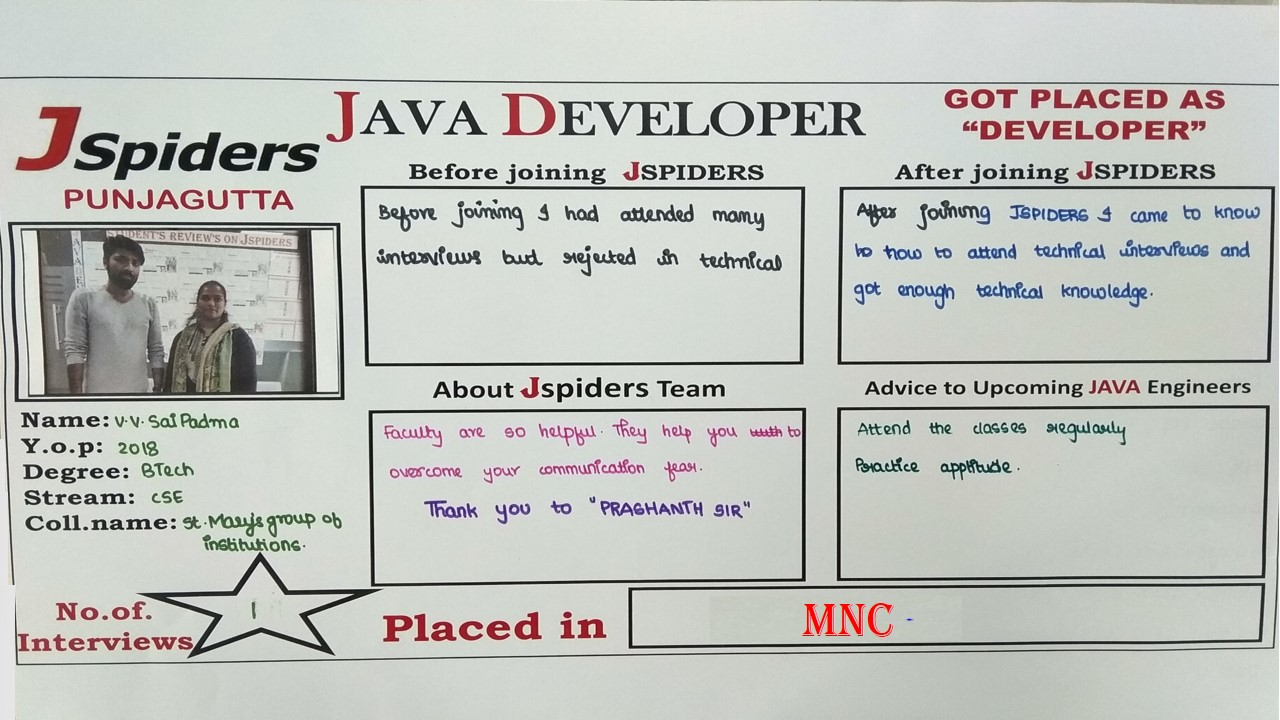 JSpiders
PUNJAGUTTA
JAVA DEVELOPER
GOT PLACED AS
“DEVELOPER”
STUDENT'S REVIEW'S ON JSPIDERS
Name: V.V. Sai Padma
Y.o.p: 2018
Degree: BTech
Stream: CSE
Coll.name: St. Mary's group of
institutions.
Before joining JSPIDERS
Before joining I had attended many
interviews but rejected in technical
After joining JSPIDERS
After joining JSPIDERS I came to know
to how to attend technical interviews and
got enough technical knowledge.
About Jspiders Team
Faculty are so helpful. They help you to
overcome your communication fear.
Thank you to "PRASHANTH SIR"
Advice to Upcoming JAVA Engineers
Attend the classes regularly
Practice apptitude.
No.of.
Interviews
1
Placed in
MNC -